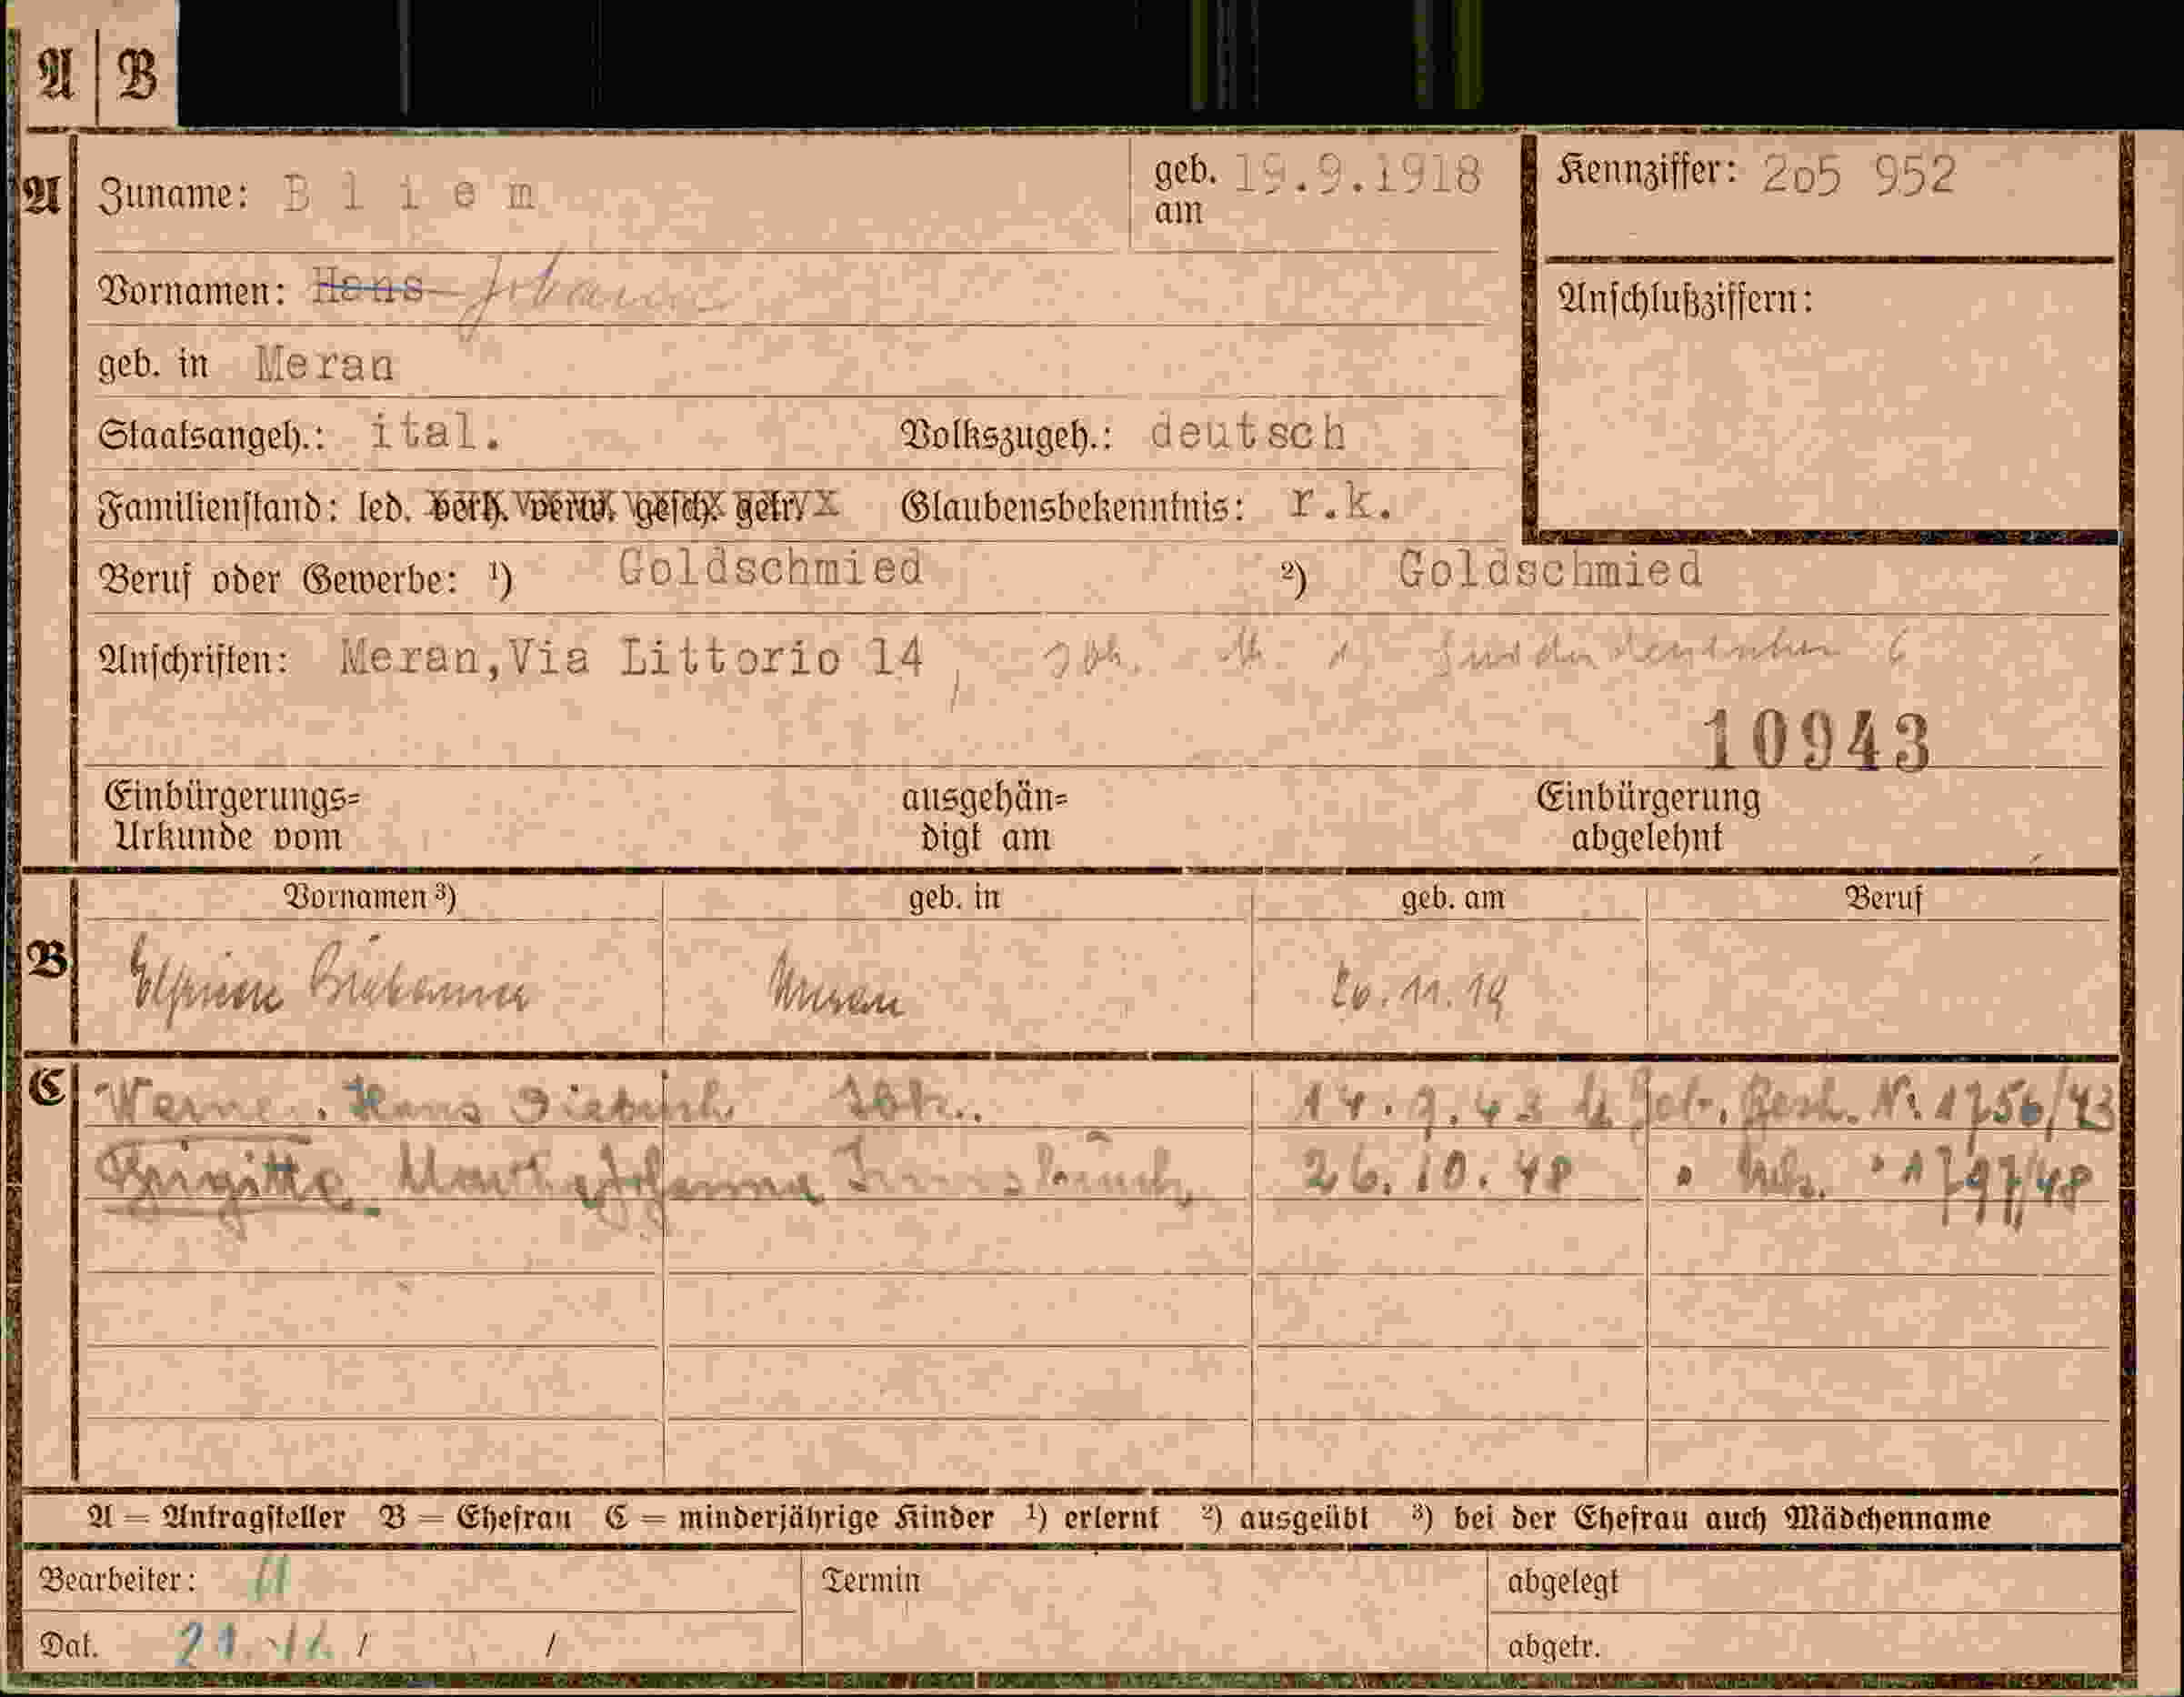 A | B
A
Zuname: Bliem
geb. am 19.9.1918
Kennziffer: 2o5 952
Vornamen: Hans Johann
Anschlußziffern:
geb. in Meran
Staatsangeh.: ital. Volkszugeh.: deutsch
Familienstand: led. verh. verw. gesch. getr. Glaubensbekenntnis: r.k.
Beruf oder Gewerbe: ¹) Goldschmied ²) Goldschmied
Anschriften: Meran,Via Littorio 14, Ibk. 6
10943
Einbürgerungs= ausgehän= Einbürgerung
Urkunde vom digt am abgelehnt
Vornamen ³) geb. in geb. am Beruf
B Meran 20.11.19
C Werner. Hans Ibk. 14.9.43 Geb. Besch. Nr. 1756/43
Brigitte Martha Johanna Innsbruck 26.10.48 " " 1797/48
A = Antragsteller B = Ehefrau C = minderjährige Kinder ¹) erlernt ²) ausgeübt ³) bei der Ehefrau auch Mädchenname
Bearbeiter: Termin abgelegt
Dat. / / abgetr.